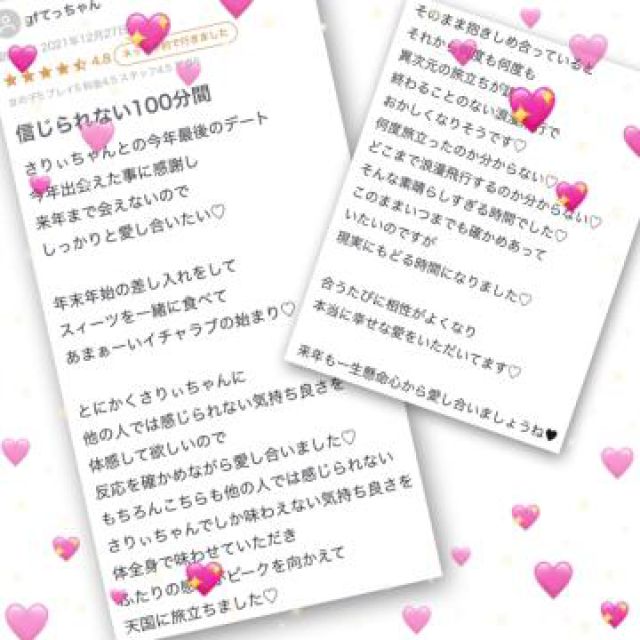 gfてっちゃん
2021年12月27日
4.8
行きました
信じられない100分間
さりぃちゃんとの今年最後のデート
今年出会えた事に感謝し
来年まで会えないので
しっかりと愛し合いたい♡
年末年始の差し入れをして
スィーツを一緒に食べて
あまぁーいイチャラブの始まり♡
とにかくさりぃちゃんに
他の人では感じられない気持ち良さを
体感して欲しいので
反応を確かめながら愛し合いました♡
もちろんこちらも他の人では感じられない
さりぃちゃんでしか味わえない気持ち良さを
体全身で味わせていただき
ふたりの感 がピークを向かえて
天国に旅立ちました♡
そのまま抱きしめ合っていると
それから 度も何度も
異次元の旅立ちが
終わることのない浪 行で
おかしくなりそうです♡
何度旅立ったのか分からない♡
どこまで浪漫飛行するのか分からない♡
そんな素晴らしすぎる時間でした♡
このままいつまでも確かめあって
いたいのですが
現実にもどる時間になりました♡
合うたびに相性がよくなり
本当に幸せな愛をいただいてます♡
来年も一生懸命心から愛し合いましょうね♥